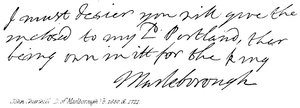 I must desier you will give the
inclosed to my Ld Portland, ther
being own in itt for the King
Marleborough
John Churchill D. of Marlborough B. 1650 d. 1722.